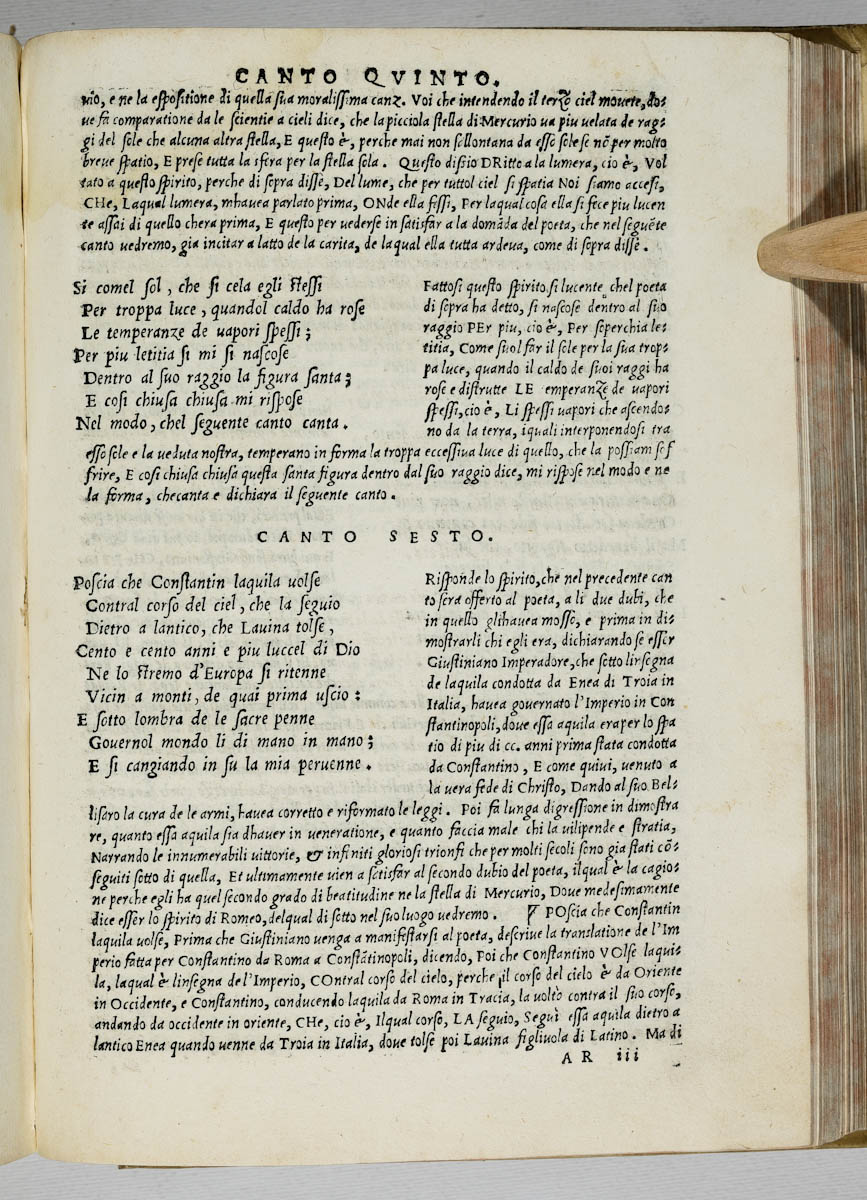 CANTO QVINTO.
uio, e ne la espositione di quella sua moralissima canz. Voi che intendendo il terzo ciel mouete, do-
ue fa comparatione da le scientie a cieli dice, che la picciola stella di Mercurio ua piu uelata de rag-
gi del sole che alcuna altra stella, E questo è, perche mai non sellontana da esso sole se nõ per molto
breue spatio, E prese tutta la sfera per la stella sola. Questo dissio DRitto a la lumera, cio è, Vol
tato a questo spirito, perche di sopra disse, Del lume, che per tuttol ciel si spatia Noi siamo accesi,
CHe, Laqual lumera, mhauea parlato prima, ONde ella fessi, Per laqual cosa ella si fece piu lucen
te assai di quello chera prima, E questo per uederse in satisfar a la domãda del poeta, che nel seguẽte
canto uedremo, gia incitar a latto de la carita, de laqual ella tutta ardeua, come di sopra disse.
Si comel sol, che si cela egli stessi
Per troppa luce, quandol caldo ha rose
Le temperanze de uapori spessi;
Per piu letitia si mi si nascose
Dentro al suo raggio la figura santa;
E cosi chiusa chiusa mi rispose
Nel modo, chel seguente canto canta.
Fattosi questo spirito si lucente, chel poeta
di sopra ha detto, si nascose dentro al suo
raggio PEr piu, cio è, Per soperchia le-
titia, Come suol far il sole per la sua trop-
pa luce, quando il caldo de suoi raggi ha
rose e distrutte LE emperanze de uapori
spessi, cio è, Li spessi uapori che ascendo-
no da la terra, iquali interponendosi tra
esso sole e la ueduta nostra, temperano in forma la troppa eccessiua luce di quello, che la possiam sof
frire, E cosi chiusa chiusa questa santa figura dentro dal suo raggio dice, mi rispose nel modo e ne
la forma, checanta e dichiara il seguente canto.
CANTO SESTO.
Poscia che Constantin laquila uolse
Contral corso del ciel, che la seguio
Dietro a lantico, che Lauina tolse,
Cento e cento anni e piu luccel di Dio
Ne lo stremo d'Europa si ritenne
Vicin a monti, de quai prima uscio:
E sotto lombra de le sacre penne
Gouernol mondo li di mano in mano;
E si cangiando in su la mia peruenne.
Risponde lo spirito, che nel precedente can
to sera offerto al poeta, a li due dubi, che
in quello glihauea mosso, e prima in di-
mostrarli chi egli era, dichiarando se esser
Giustiniano Imperadore, che sotto linsegna
de laquila condotta da Enea di Troia in
Italia, hauea gouernato l'Imperio in Con
stantinopoli, doue essa aquila era per lo spa
tio di piu di cc. anni prima stata condotta
da Constantino, E come quiui, uenuto a
la uera fede di Christo, Dando al suo Bel-
lisaro la cura de le armi, hauea corretto e riformato le leggi. Poi fa lunga digressione in dimostra
re, quanto essa aquila sia dhauer in ueneratione, e quanto faccia male chi la uilipende e stratia,
Narrando le innumerabili uittorie, & infiniti gloriosi trionfi che per molti secoli sono gia stati cõ-
seguiti sotto di quella, Et ultimamente uien a satisfar al secondo dubio del poeta, ilqual è la cagio-
ne perche egli ha quel secondo grado di beatitudine ne la stella di Mercurio, Doue medesimamente
dice esser lo spirito di Romeo, delqual di sotto nel suo luogo uedremo. ¶ POscia che Constantin
laquila uolse, Prima che Giustiniano uenga a manifestarsi al poeta, descriue la translatione de l'Im
perio fatta per Constantino da Roma a Constãtinopoli, dicendo, Poi che Constantino VOlse laqui-
la, laqual è linsegna de l'Imperio, COntral corso del cielo, perche il corso del cielo è da Oriente
in Occidente, e Constantino, conducendo laquila da Roma in Tracia, la uolto contra il suo corso,
andando da occidente in oriente, CHe, cio è, Ilqual corso, LA seguio, Seguì essa aquila dietro a
lantico Enea quando uenne da Troia in Italia, doue tolse poi Lauina figliuola di Latino. Ma di
AR iii